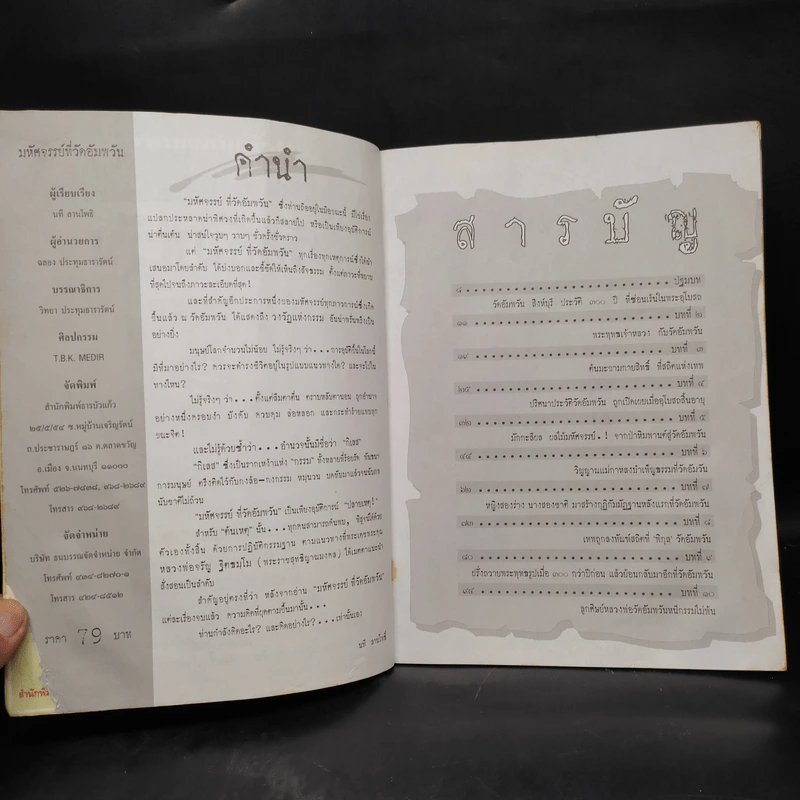 มหัศจรรย์ที่วัดอัมพวัน
ผู้เรียบเรียง
นที ลานโพธิ์
ผู้อำนวยการ
ฉลอง ประทุมธารารัตน์
บรรณาธิการ
วิทยา ประทุมธารารัตน์
ศิลปกรรม
T.B.K. MEDIR
จัดพิมพ์
สำนักพิมพ์ธารบัวแก้ว
๒๕/๕/๕๙ ซ.หมู่บ้านเจริญรัตน์
ถ.ประชาราษฎร์ ๑๖ ต.ตลาดขวัญ
อ.เมือง จ.นนทบุรี ๑๑๐๐๐
จัดจำหน่าย
บริษัท ธนบรรณจัดจำหน่าย จำกัด
ราคา 79 บาท
คำนำ
"มหัศจรรย์ ที่วัดอัมพวัน" ซึ่งท่านถืออยู่ในมือขณะนี้ มิใช่เรื่อง
แปลกประหลาดน่าพิศวงที่เกิดขึ้นแล้วก็สลายไป หรือเป็นเพียงอุบัติการณ์
น่าตื่นเต้น น่าสนใจวูบๆ วาบๆ ชั่วครั้งชั่วคราว
แต่ "มหัศจรรย์ ที่วัดอัมพวัน" ทุกเรื่องทุกเหตุการณ์ซึ่งได้นำ
เสนอมาโดยลำดับ ได้บ่งบอกและชี้ชัดให้เห็นถึงสัจธรรม ตั้งแต่ภาวะที่หยาบ
ที่สุดไปจนถึงภาวะละเอียดที่สุด!
และที่สำคัญอีกประการหนึ่งของมหัศจรรย์ทุกภาวการณ์ซึ่งเกิด
ขึ้นแล้ว ณ วัดอัมพวัน ได้แสดงถึง วงวัฏแห่งกรรม อันน่าพรั่นพรึงเป็น
อย่างยิ่ง
มนุษย์โลกจำนวนไม่น้อย ไม่รู้จริงๆ ว่า...การอุบัติขึ้นในโลกนี้
มีที่มาอย่างไร? ควรจะดำรงชีวิตอยู่ในรูปแบบแนวทางใด? และจะไปใน
ทางไหน?
ไม่รู้จริงๆ ว่า...ตั้งแต่ลืมตาตื่น ตราบหลับตานอน ถูกอำนาจ
อย่างหนึ่งครอบงำ บังคับ ควบคุม ล่อหลอก และกระทำร้ายแทบทุก
ขณะจิต!
และไม่รู้ด้วยซ้ำว่า...อำนาจนั้นมีชื่อว่า "กิเลส"
"กิเลส" ซึ่งเป็นรากเหง้าแห่ง "กรรม"
"มหัศจรรย์ ที่วัดอัมพวัน" เป็นเพียงอุบัติการณ์ "ปลายเหตุ!"
สำหรับ "ต้นเหตุ" นั้น...ทุกคนสามารถค้นพบ, พิสูจน์ได้ด้วย
ตัวเองทั้งสิ้น ด้วยการปฏิบัติกรรมฐาน ตามแนวทางที่พระเดชพระคุณ
หลวงพ่อจรัญ ฐิตธมฺโม (พระราชสุทธิญาณมงคล) ได้เมตตาแนะนำ
สั่งสอนเป็นลำดับ
สำคัญอยู่ตรงที่ว่า หลังจากอ่าน "มหัศจรรย์ ที่วัดอัมพวัน"
แต่ละเรื่องจบแล้ว ความคิดที่ผุดตามขึ้นมานั้น...
ท่านกำลังคิดอะไร? และคิดอย่างไร?...เท่านั้นเอง
นที ลานโพธิ์
สารบัญ
๘ ปฐมบท
วัดอัมพวัน สิงห์บุรี ประวัติ ๓๐๐ ปี ที่ซ่อนเร้นในพระอุโบสถ
๑๑ บทที่ ๒
พระพุทธเจ้าหลวง กับวัดอัมพวัน
๑๙ บทที่ ๓
ต้นมะขามกายสิทธิ์ ที่สถิตแห่งเทพ
๒๕ บทที่ ๔
ปริศนาประวัติวัดอัมพวัน ถูกเปิดเผยเมื่ออุโบสถสิ้นอายุ
๓๒ บทที่ ๕
มักกะลีผล ผลไม้มหัศจรรย์.! จากป่าหิมพานต์สู่วัดอัมพวัน
๔๔ บทที่ ๖
วิญญาณแม่กาหลงบำเพ็ญธรรมที่วัดอัมพวัน
๖๒ บทที่ ๗
หญิงสองร่าง นางสองชาติ มาสร้างกุฏิกัมมัฏฐานหลังแรกที่วัดอัมพวัน
๗๒ บทที่ ๘
เทพถูกลงทัณฑ์สถิตที่ "พิกุล" วัดอัมพวัน
๘๐ บทที่ ๙
ฝรั่งถวายพระพุทธรูปเมื่อ ๓๐๐ กว่าปีก่อน แล้วย้อนกลับมาอีกที่วัดอัมพวัน
๙๔ บทที่ ๑๐
ลูกศิษย์หลวงพ่อวัดอัมพวันหนีกรรมไม่พ้น